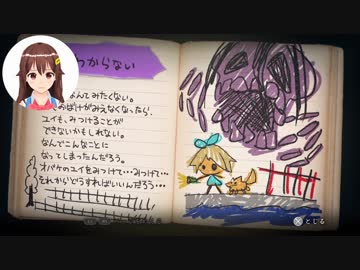 わからない
なんてみたくない。
のばけがみえなくなったら、
ユイも、みつけることが
できないかもしれない。
なんでこんなことに
なってしまったんだろう。
オバケのユイをみつけて…みつけて…
それからどうすればいいんだろう…
とじる